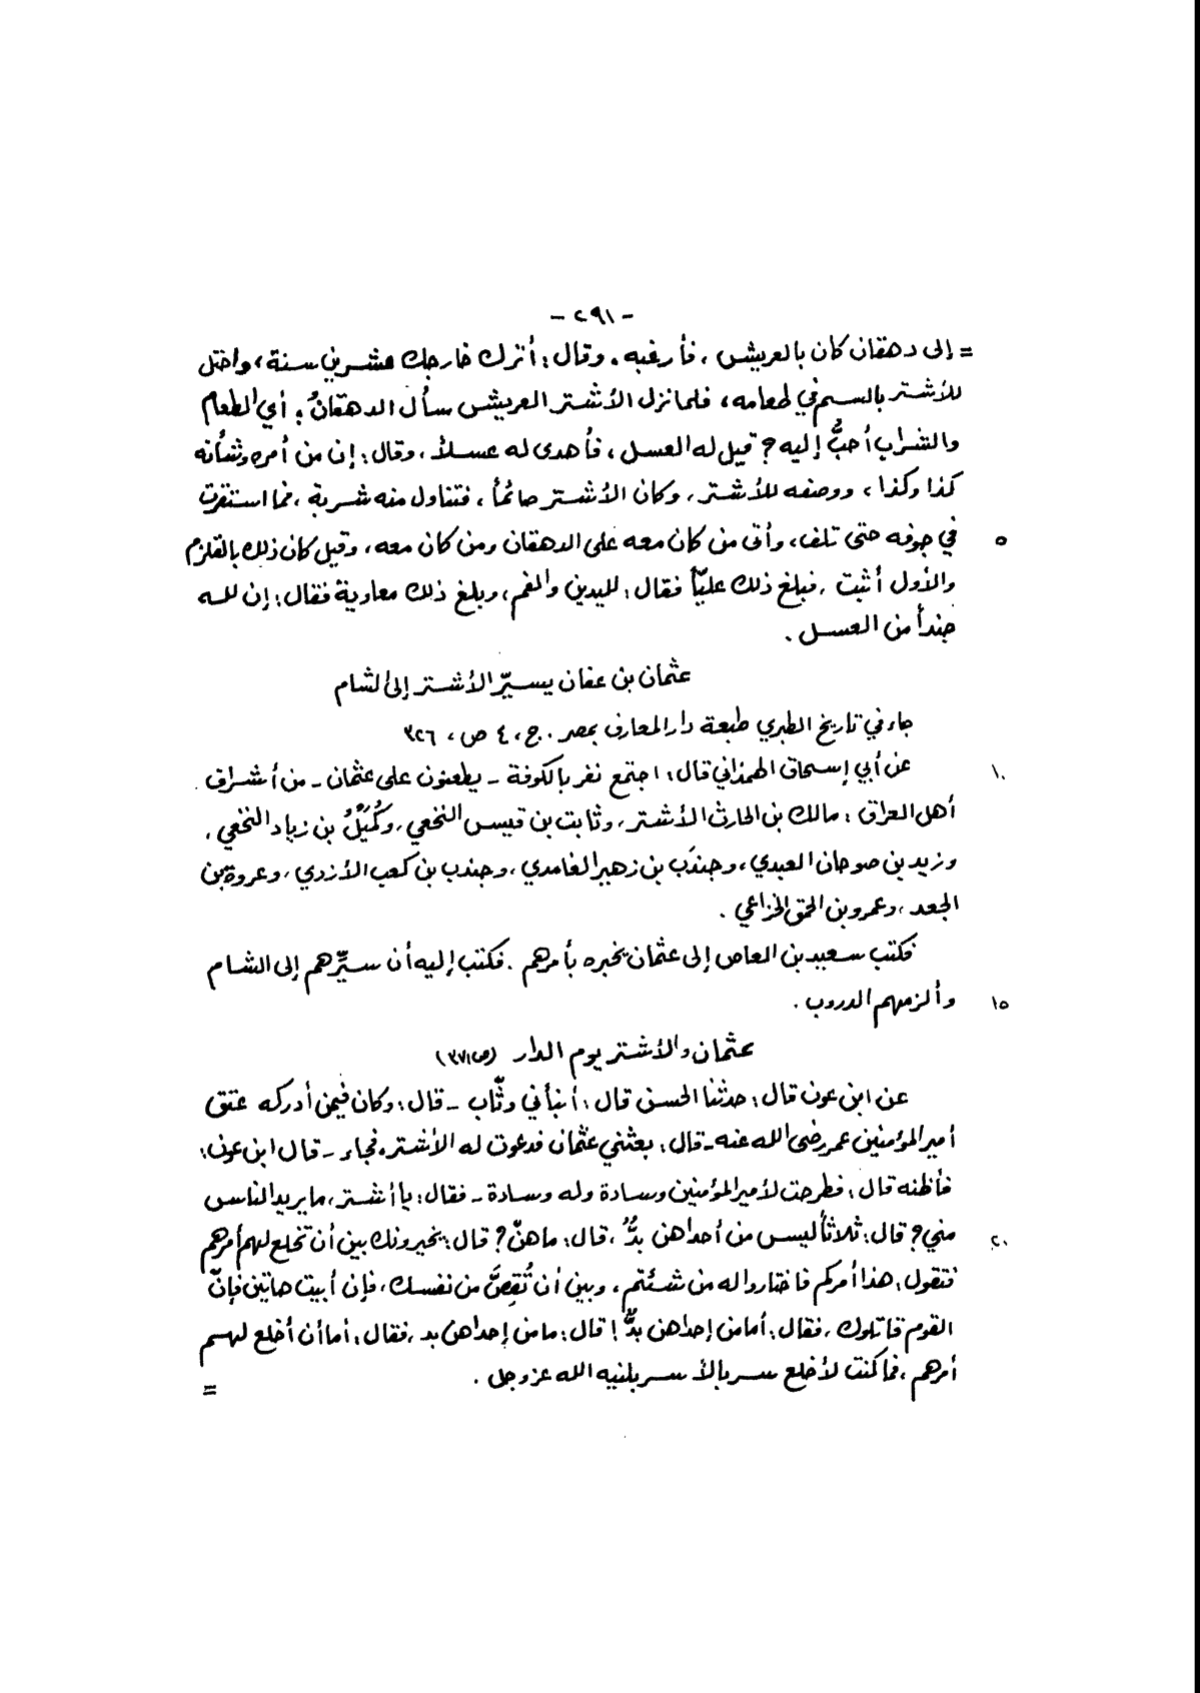 - ٢٩١ -
= إلى دهقان كان بالعريش ، فأرغبه . وقال : أترك خراجك عشرين سنة ، واحتل
للأشتر بالسم في طعامه ، فلما نزل الأشتر العريش سأل الدهقانُ : أي الطعام
والشراب أحبُّ إليه ؟ قيل له العسل ، فأهدى له عسلاً ، وقال : إن من أمره وشأنه
كذا وكذا ، ووصفه للأشتر ، وكان الأشتر صائماً ، فتناول منه شربة ، فما استقرت
في جوفه حتى تلف ، وأتى من كان معه على الدهقان ومن كان معه ، وقيل كان ذلك بالقلزم
٥
والأول أثبت ، فبلغ ذلك عليّاً فقال : لليدين والفم ، وبلغ ذلك معاوية فقال : إن لله
جنداً من العسل .
عثمان بن عفان يسيّر الأشتر إلى الشام
جاء في تاريخ الطبري طبعة دار المعارف بمصر . ج ، ٤ ص ، ٣٢٦
عن أبي إسحاق الهمذاني قال : اجتمع نفر بالكوفة - يطعنون على عثمان - من أشراف
١٠
أهل العراق : مالك بن الحارث الأشتر ، وثابت بن قيس النخعي ، وكُمَيْلُ بن زياد النخعي ،
وزيد بن صوحان العبدي ، وجندَب بن زهير الغامدي ، وجندب بن كعب الأزدي ، وعروة بن
الجعد ، وعمرو بن الحمق الخزاعي .
فكتب سعيد بن العاص إلى عثمان يخبره بأمرهم . فكتب إليه أن سيِّرهم إلى الشام
وألزمهم الدروب .
١٥
عثمان والأشتر يوم الدار (ص٣٧١)
عن ابن عون قال : حدثنا الحسن قال : أنبأني وثّاب - قال : وكان فيمن أدركه عتق
أمير المؤمنين عمر رضي الله عنه - قال : بعثني عثمان فدعوت له الأشتر ، فجاء - قال ابن عون :
فأظنه قال : فطرحت لأمير المؤمنين وسادة وله وسادة - فقال : يا أشتر ، ما يريد الناس
مني ؟ قال : ثلاثاً ليس من أحداهن بدٌّ ، قال : ما هنّ ؟ قال : يخيرونك بين أن تخلع لهم أمرهم
٢٠
فتقول : هذا أمركم فاختاروا له من شئتم ، وبين أن تُقِصَّ من نفسك ، فإن أبيت هاتين فإنّ
القوم قاتلوك ، فقال : أما من إحداهن بدٌّ ! قال : ما من إحداهن بد ، فقال : أما أن أخلع لهم
أمرهم ، فما كنت لأخلع سربالاً سربلنيه الله عز وجل .
=